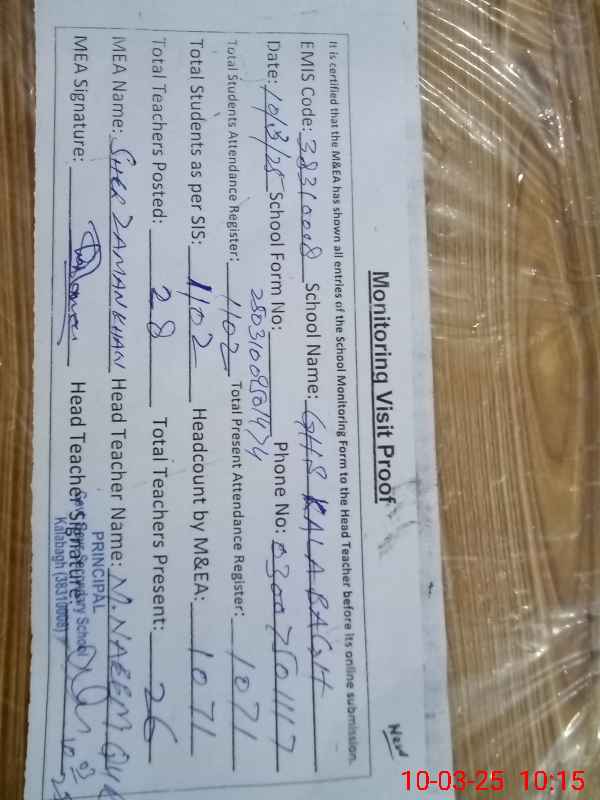 New
Monitoring Visit Proof
It is certified that the M&EA has shown all entries of the School Monitoring Form to the Head Teacher before its online submission.
EMIS Code: 38310008 School Name: GHS KALA BAGH
Date: 10/3/25 School Form No: 25031008501474 Phone No: 03007501117
Total Students Attendance Register: 1102 Total Present Attendance Register: 1071
Total Students as per SIS: 1102 Headcount by M&EA: 1071
Total Teachers Posted: 28 Total Teachers Present: 26
MEA Name: SHER ZAMAN KHAN Head Teacher Name: M. NAEEM
MEA Signature: Head Teacher Signature:
PRINCIPAL
Secondary School
Kalabagh (38310008)
10-03-25 10:15